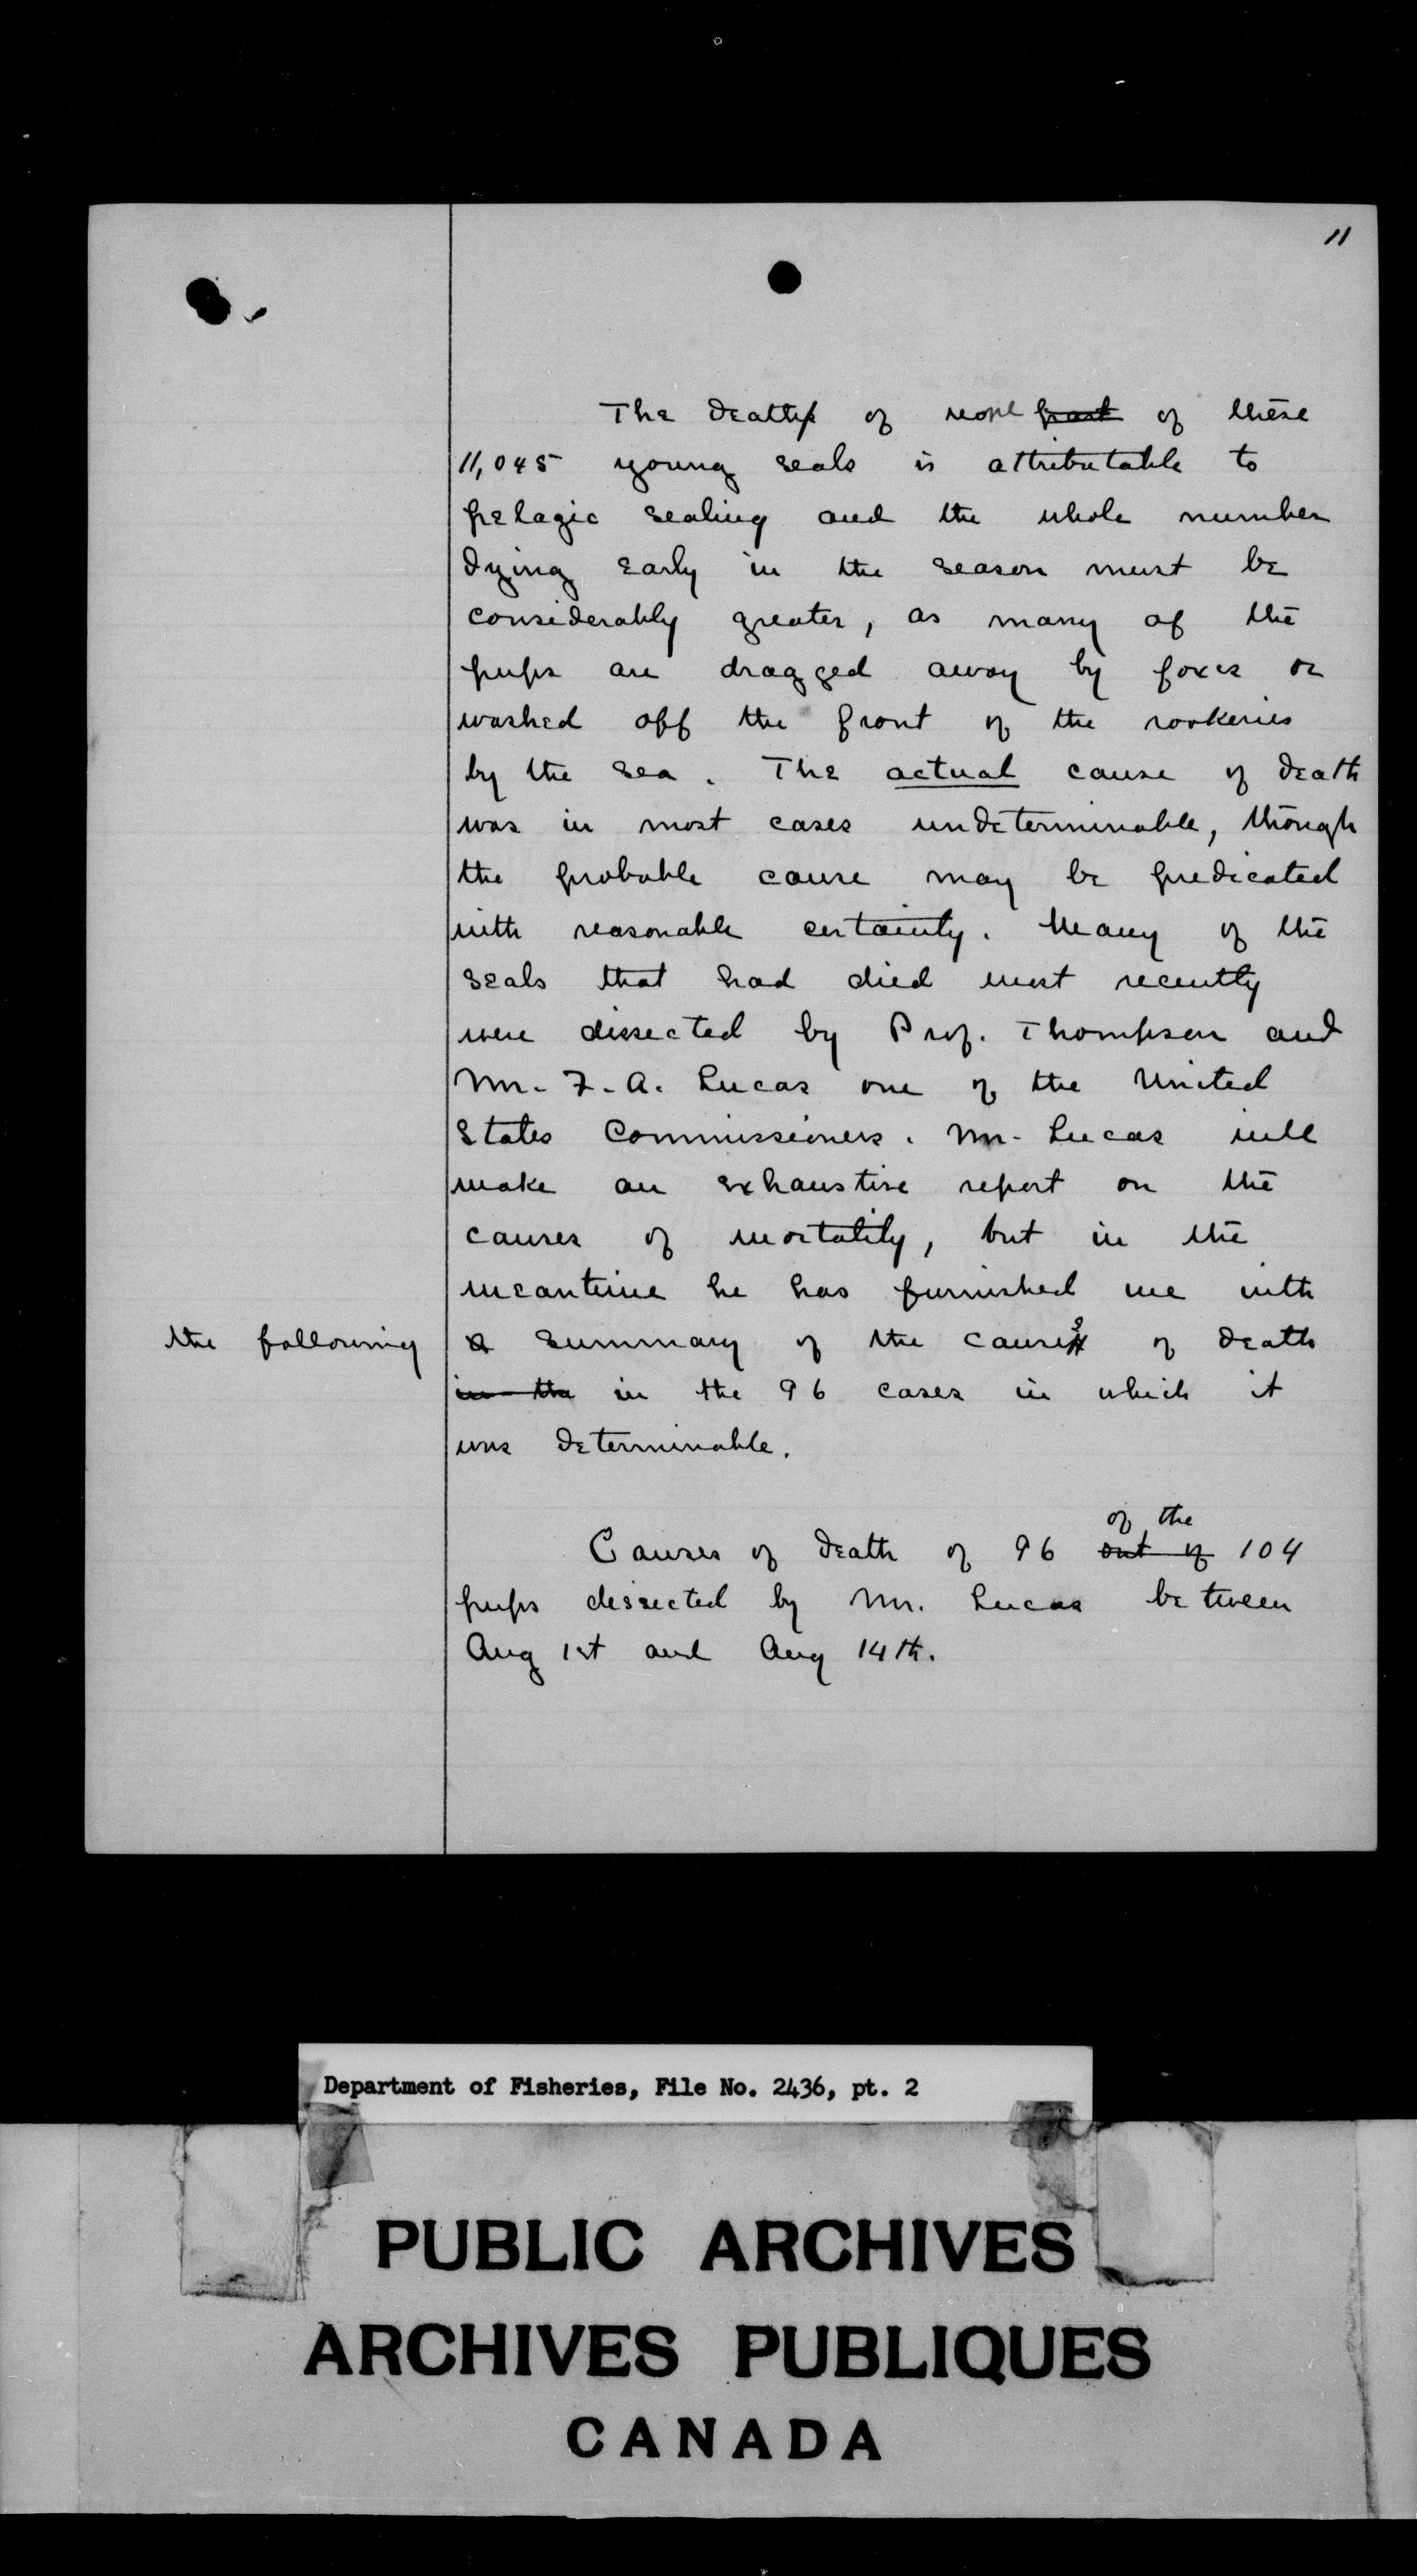 11
The death of none part of these
11,045 young seals is attributable to
pelagic sealing and the whole number
dying early in the season must be
considerably greater, as many of the
pups are dragged away by foxes or
washed off the front of the rookeries
by the sea. The actual cause of death
was in most cases undeterminable, though
the probable cause may be predicated
with reasonable certainty. Many of the
seals that had died most recently
were dissected by Prof. Thompson and
Mr. F. A. Lucas one of the United
States Commissioners. Mr. Lucas will
make an exhaustive report on the
causes of mortality, but in the
meantime he has furnished me with
the following a summary of the causes of death
in the in the 96 cases in which it
was determinable.
of the
Causes of death of 96 out of 104
pups dissected by Mr. Lucas between
Aug 1st and Aug 14th.
Department of Fisheries, File No. 2436, pt. 2
PUBLIC ARCHIVES
ARCHIVES PUBLIQUES
CANADA